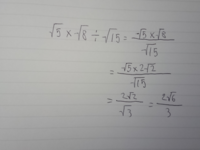 √5 × √8 ÷ √15 = √5 × √8 / √15
= √5 × 2√2 / √15
= 2√2 / √3 = 2√6 / 3